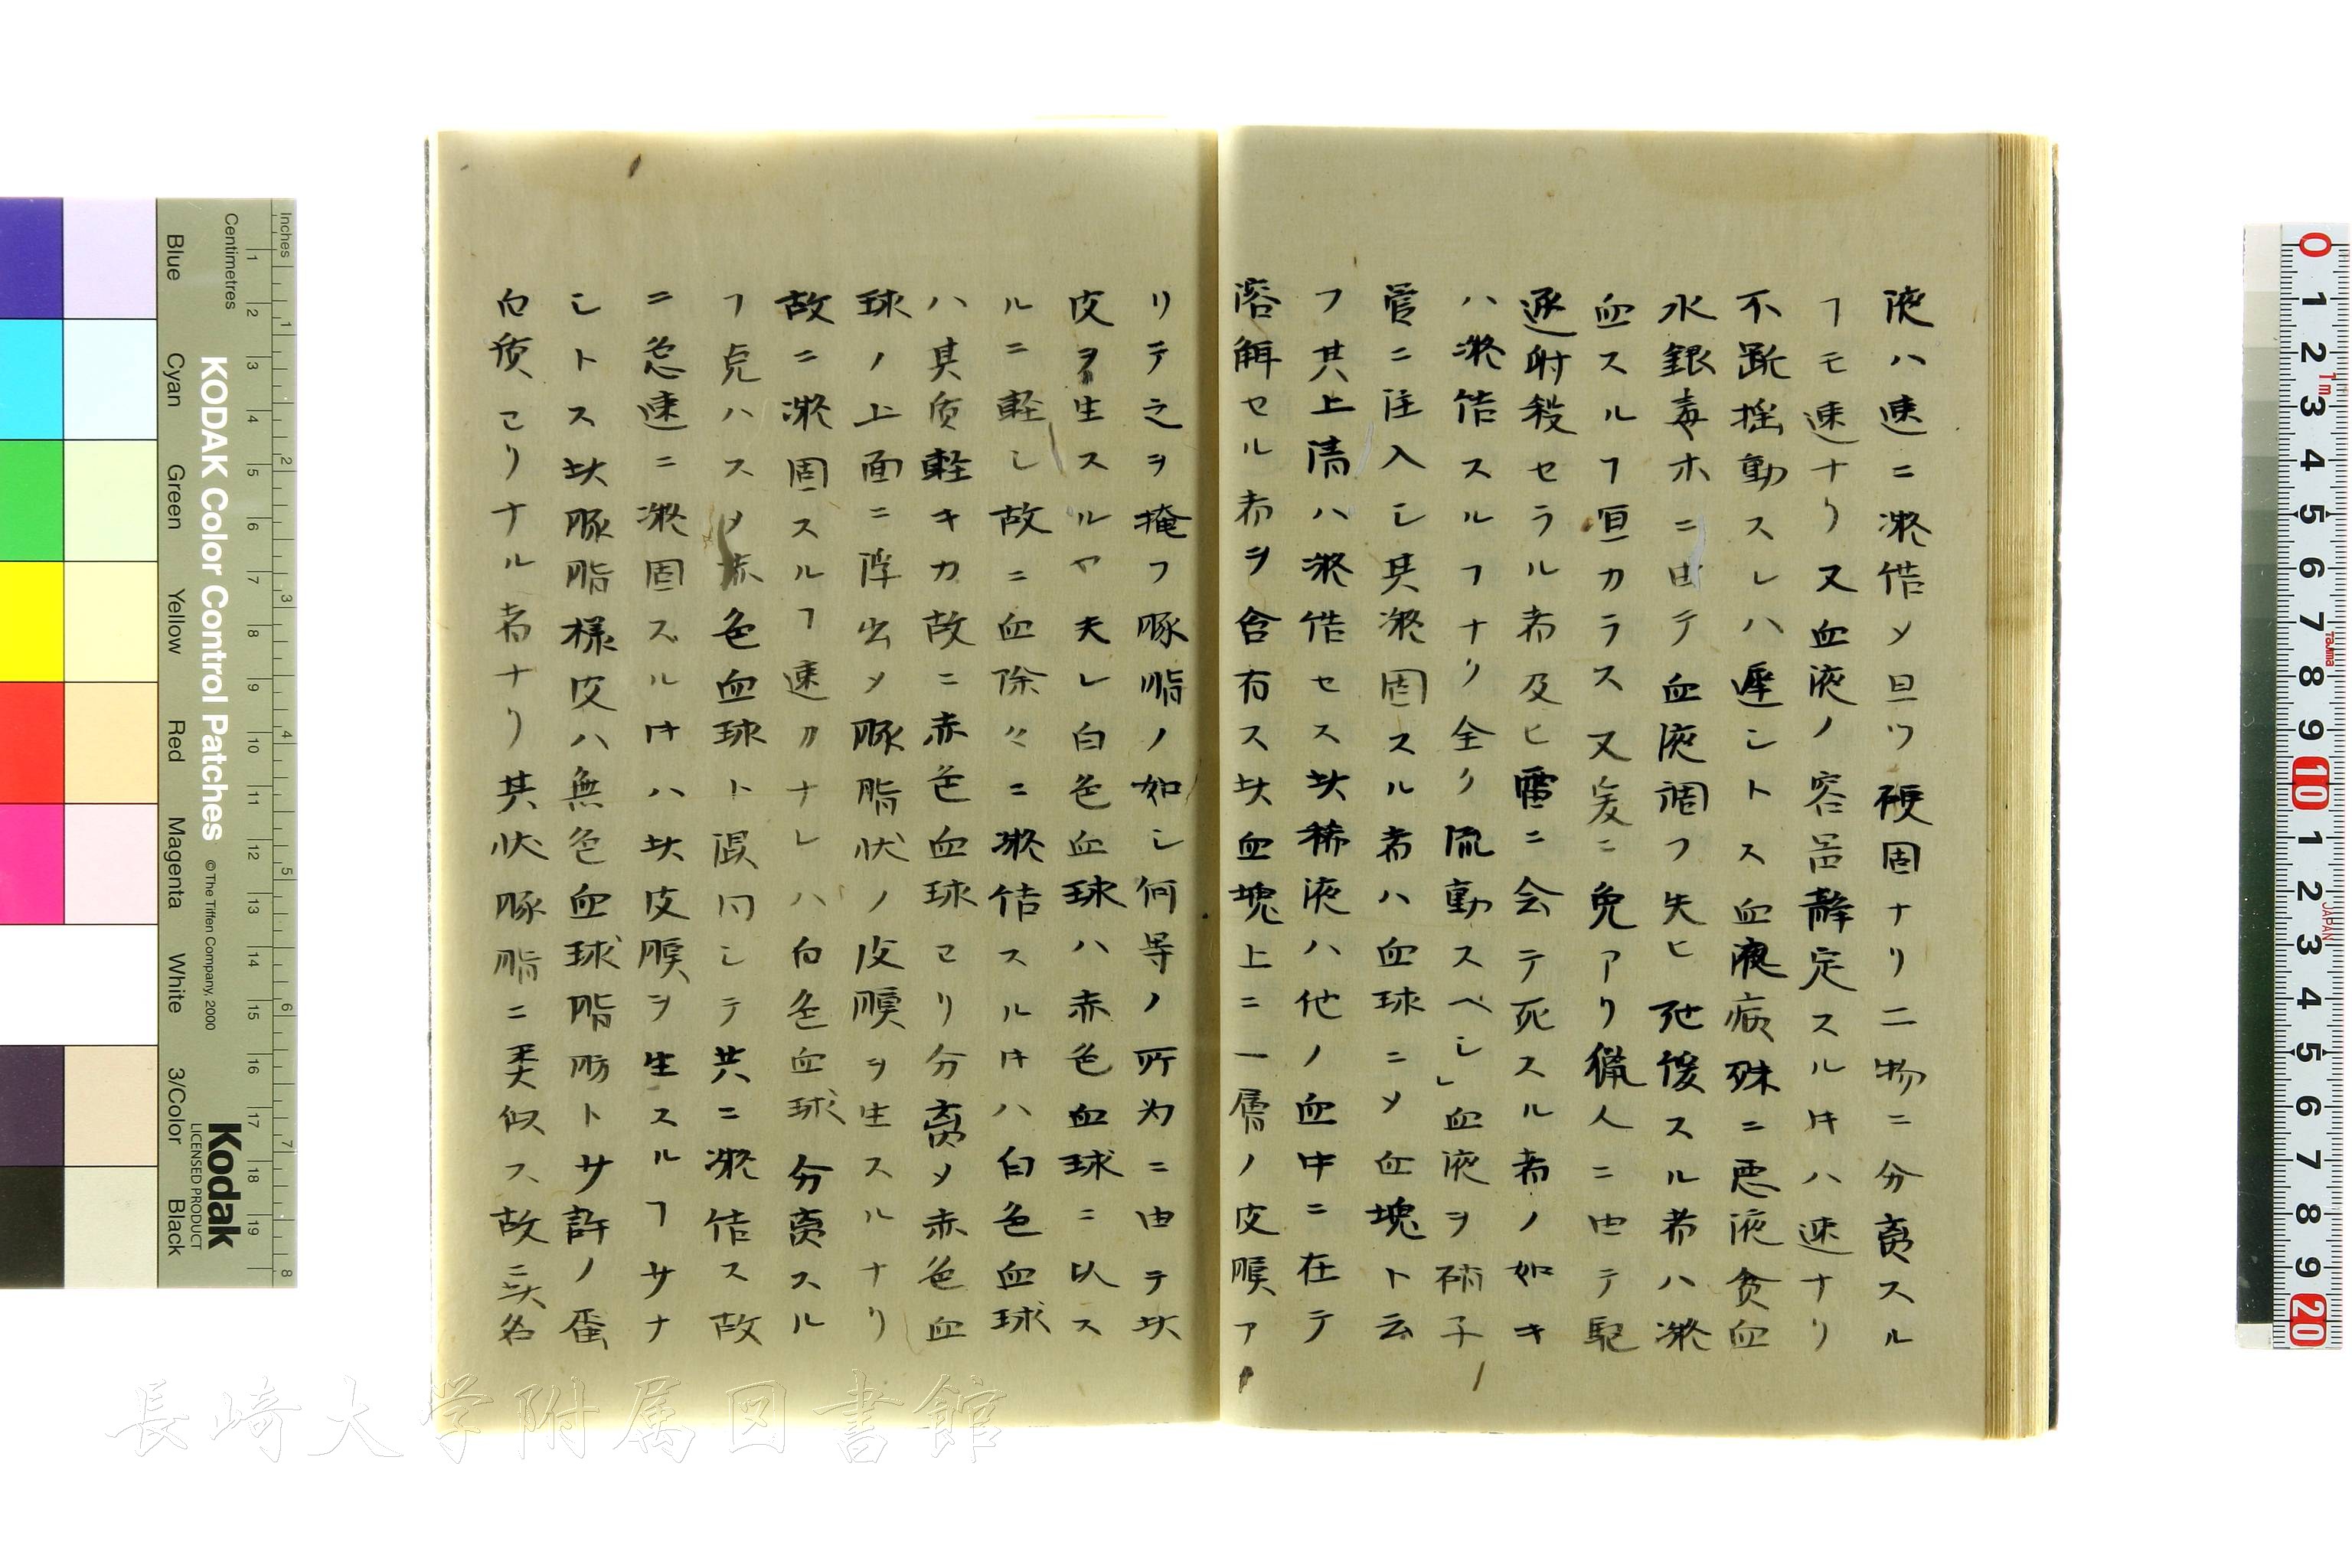 液ハ速ニ凝結メ且ツ硬固ナリ二物ニ分离スル
ヿモ速ナリ又血液ノ容品静定スル𪜈ハ速ナリ
不断揺動スレハ遅シトス血液病殊ニ悪液貧血
水銀毒ホニ由テ血液調フ失ヒ死後スル者ハ凝
血スルヿ亘カラス又爰ニ免アリ猟人ニ由テ駆
逐射殺セラル者及ヒ雷ニ会テ死スル者ノ如キ
ハ凝结スルヿナリ全ク流動スヘシ」血液ヲ硝子
管ニ注入し其凝固スル者ハ血球ニメ血塊ト云
フ其上清ハ凝结セス此稀液ハ他ノ血中ニ在テ
溶解セル者ヲ含有ス此血塊上ニ一層ノ皮膜ア
リテ之ヲ掩フ豚脂ノ如シ何等ノ所为ニ由テ此
皮ヲ生スルヤ夫レ白色血球ハ赤色血球ニ以ス
ルニ軽し故ニ血除々ニ凝结スル𪜈ハ白色血球
ハ其质軽キカ故ニ赤色血球ヨリ分离メ赤色血
球ノ上面ニ浮出メ豚脂状ノ皮膜ヲ生スルナリ
故ニ凝固スルヿ速カナレハ白色血球分离スル
ヿ克ハスメ赤色血球ト混同シテ共ニ凝结ス故
ニ急速ニ凝固スル𪜈ハ此皮膜ヲ生スルヿサナ
シトス此豚脂様皮ハ無色血球脂肪トサ許ノ蛋
白质ヨリナル者ナリ其状豚脂ニ柔似ス故ニ此名
KODAK Color Control Patches
© The Tiffen Company, 2000
Kodak
LICENSED PRODUCT
Inches
Centimetres
Blue
Cyan
Green
Yellow
Red
Magenta
White
3/Color
Black
長崎大学附属図書館